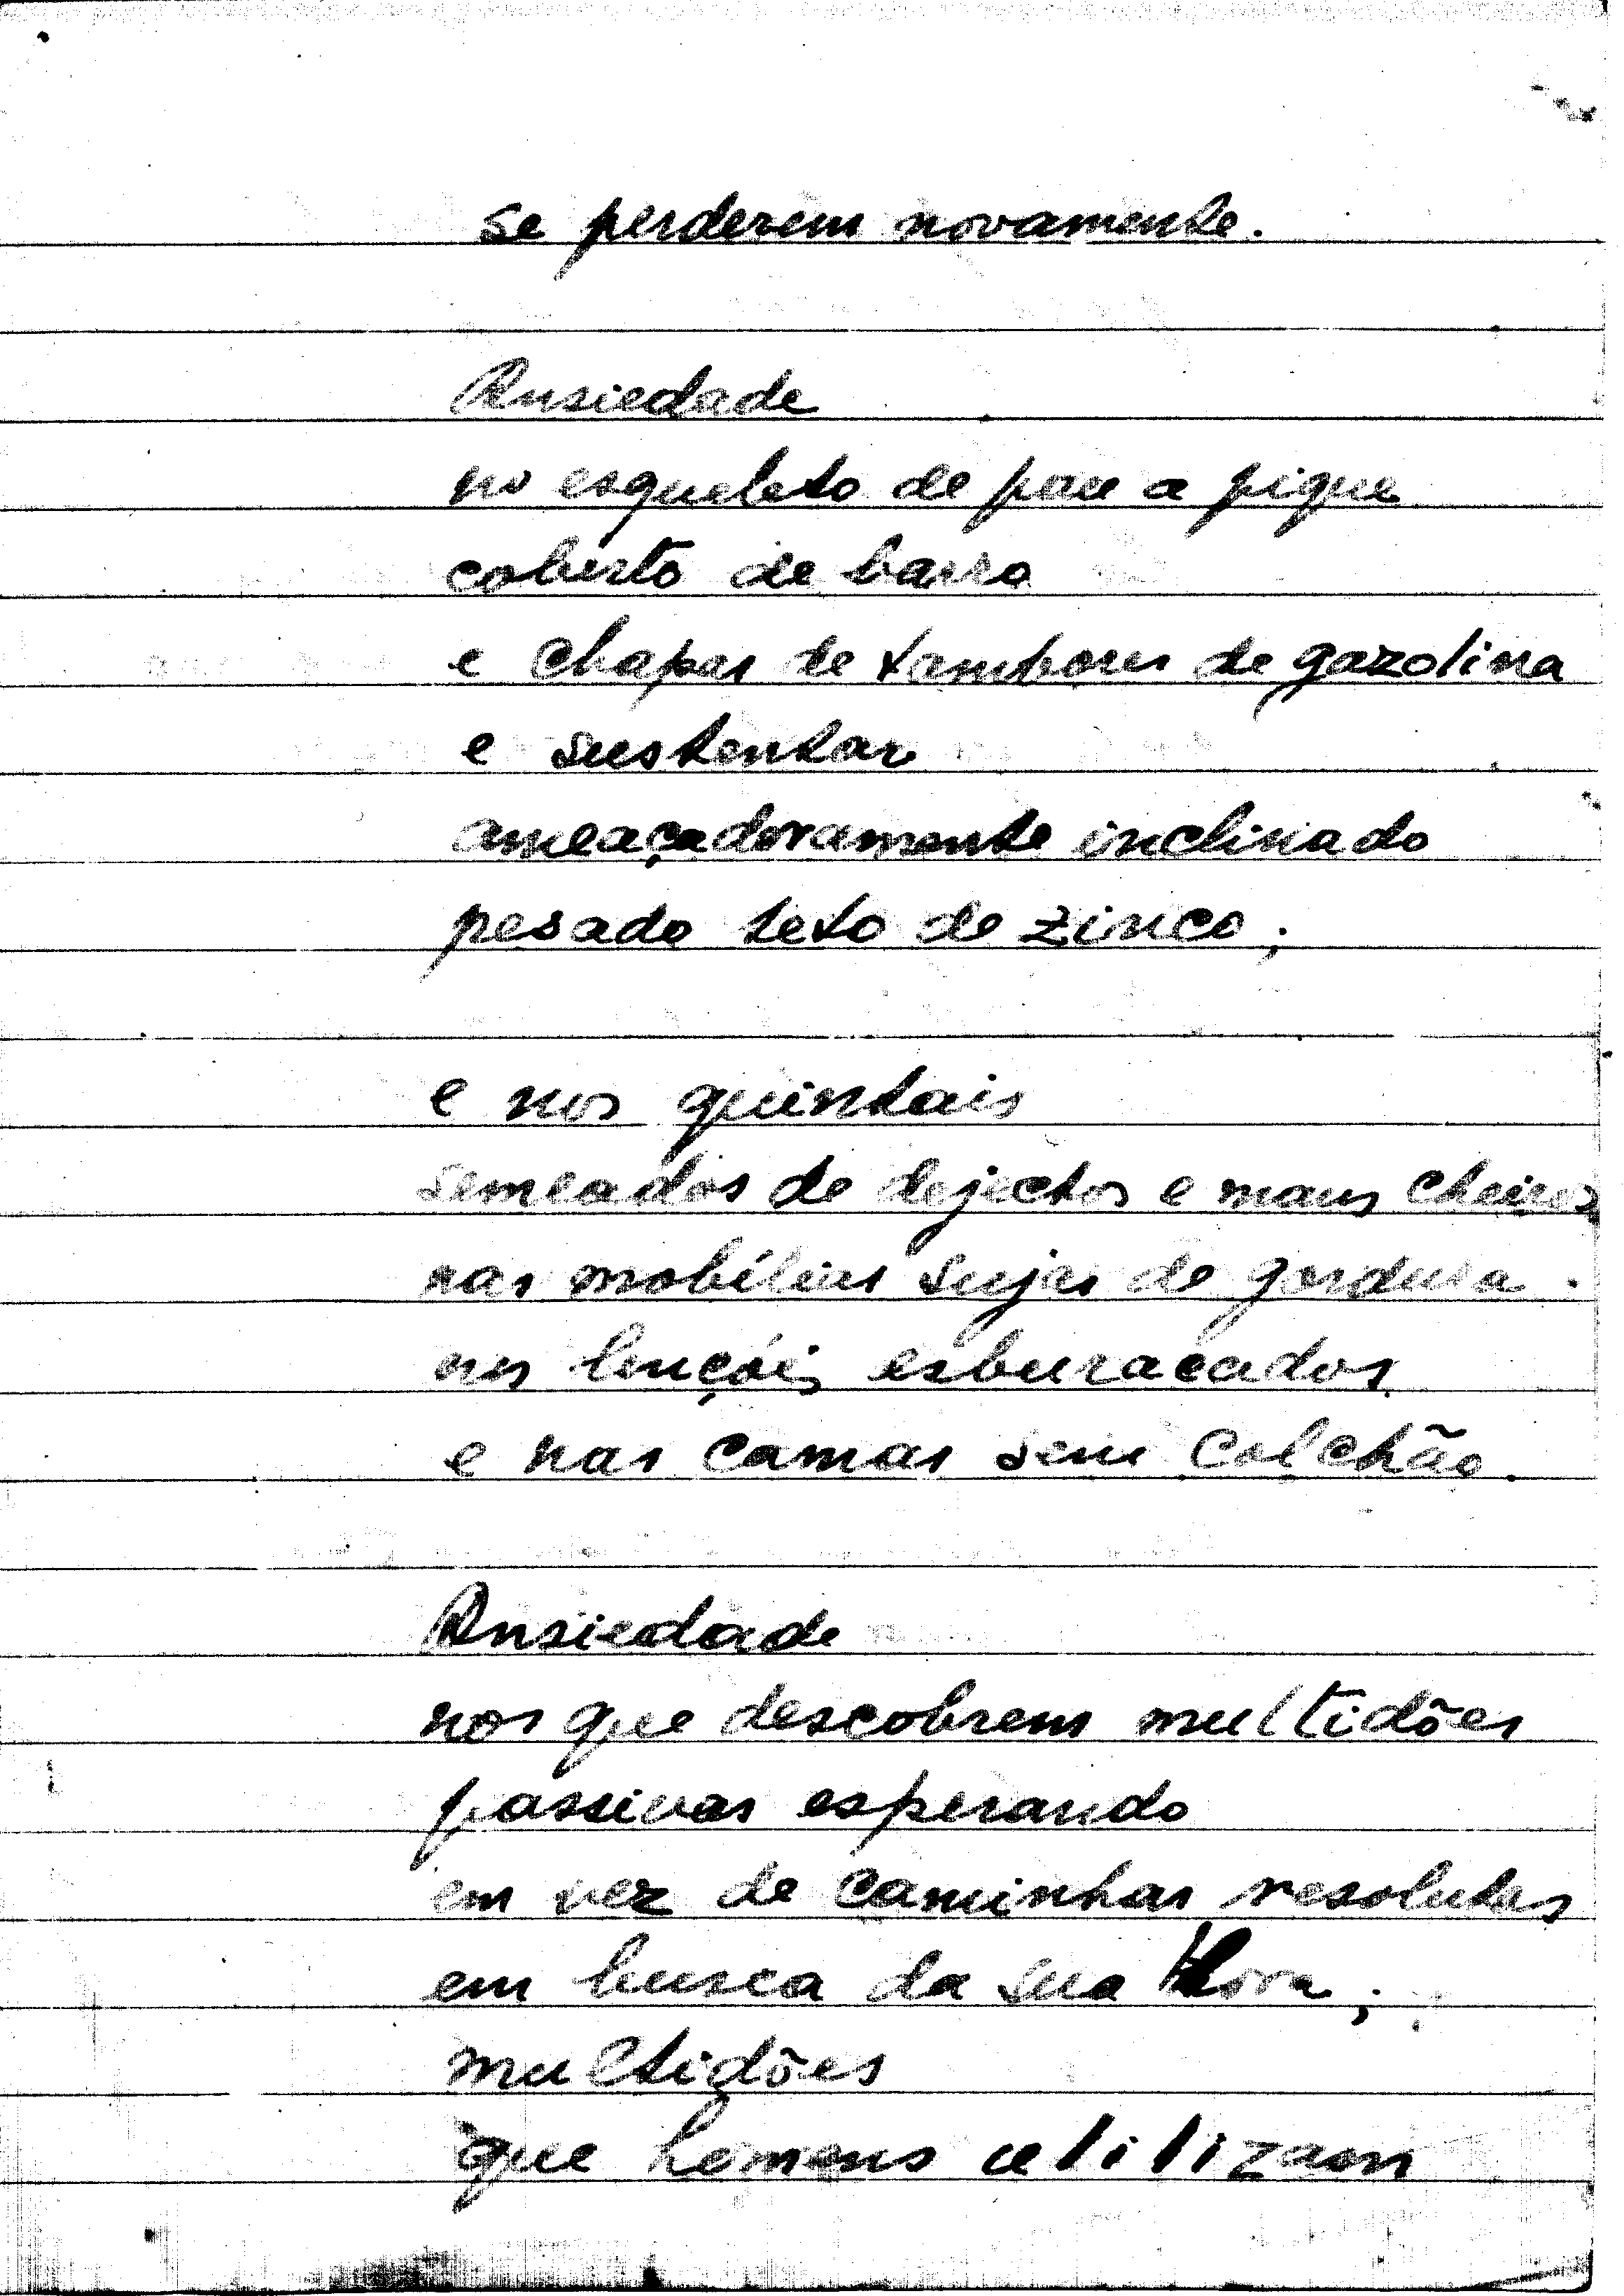 se perderem novamente.
Ansiedade
no esqueleto de pau a pique
coberto de barro
e chapas de tambores de gazolina
e sustentar
ameaçadoramente inclinado
pesado teto de zinco;
e nos quintais
semeados de dejectos e maus cheiros
nas mobílias sujas de gordura.
nos lençóis esburacados
e nas camas sem colchão.
Ansiedade
nos que descobrem multidões
passivas esperando
em vez de caminhar resolutas
em busca da sua Hora;
multidões
que homens utilizam